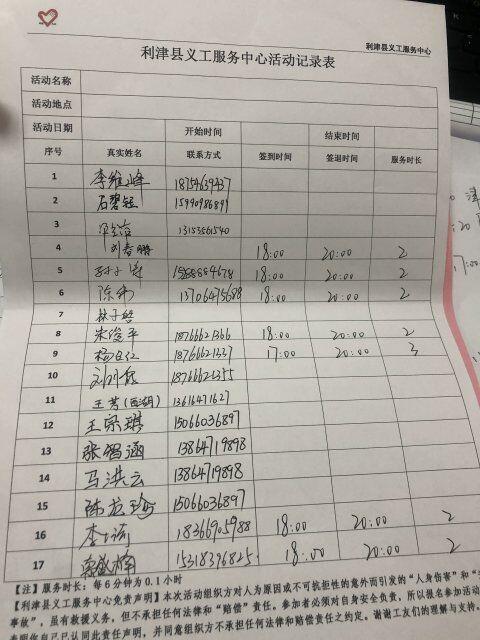 利津县义工服务中心
利津县义工服务中心活动记录表
活动名称
活动地点
活动日期 开始时间 结束时间
序号 真实姓名 联系方式 签到时间 签退时间 服务时长
1 李维峰 18754639437
2 石碧 1599098689
3 13153561540
4 刘春鹏 18:00 20:00 2
5 15888884678 18:00 20:00 2
6 陈伟 13706475688 18:00 20:00 2
7 林子皓
8 朱俊平 18766621366 18:00 20:00 2
9 18766621337 17:00 20:00 3
10 18766621355
11 王芳(西湖) 13616471627
12 王宗琪 15066036897
13 张智涵 13864719898
14 马洪云 13864719898
15 陈 15066036897
16 李 18366905988 18:00 20:00 2
17 15318396825 18:00 20:00 2
【注】服务时长：每6分钟为0.1小时
【利津县义工服务中心免责声明】本次活动组织方对人为原因或不可抗拒性的意外而引发的“人身伤害”和
事故”，虽有救援义务，但不承担任何法律和“赔偿”责任。参加者必须对自身安全负责，所以报名参加活动
己已同意此责任声明，并同意组织方不承担任何法律和赔偿责任之约定。谢谢工友们的理解与支持。